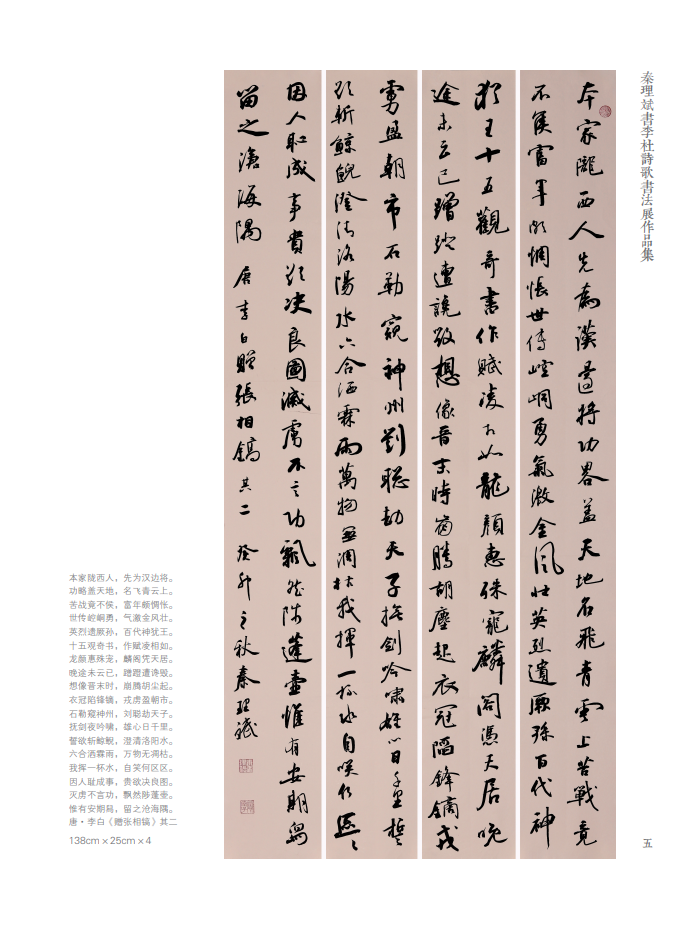 秦理斌書李杜詩歌書法展作品集
本家隴西人先為漢邊將功畧蓋天地名飛青雲上苦戰竟
不侯富年頗惆悵世傳崆峒勇氣激金風壯英烈遺厥孫百代神
猶王十五觀奇書作賦凌相如龍顏惠殊寵麟閣憑天居晚
途未云已蹭蹬遭讒毀想像晉末時崩騰胡塵起衣冠陷鋒鏑戎
虜盈朝市石勒窺神州劉聰劫天子撫劍吟嘯雄心日千里誓
欲斬鯨鯢澄清洛陽水六合洒霖雨萬物無凋枯我揮一杯水自笑何區區
因人耻成事貴欲决良圖滅虜不言功飄然陟蓬壺惟有安期舄
留之滄海隅 唐李白贈張相鎬其二 癸卯之秋秦理斌
本家陇西人，先为汉边将。
功略盖天地，名飞青云上。
苦战竟不侯，富年颇惆怅。
世传崆峒勇，气激金风壮。
英烈遗厥孙，百代神犹王。
十五观奇书，作赋凌相如。
龙颜惠殊宠，麟阁凭天居。
晚途未云已，蹭蹬遭谗毁。
想像晋末时，崩腾胡尘起。
衣冠陷锋镝，戎虏盈朝市。
石勒窥神州，刘聪劫天子。
抚剑夜吟啸，雄心日千里。
誓欲斩鲸鲵，澄清洛阳水。
六合洒霖雨，万物无凋枯。
我挥一杯水，自笑何区区。
因人耻成事，贵欲决良图。
灭虏不言功，飘然陟蓬壶。
惟有安期舄，留之沧海隅。
唐·李白《赠张相镐》其二
138cm×25cm×4
五